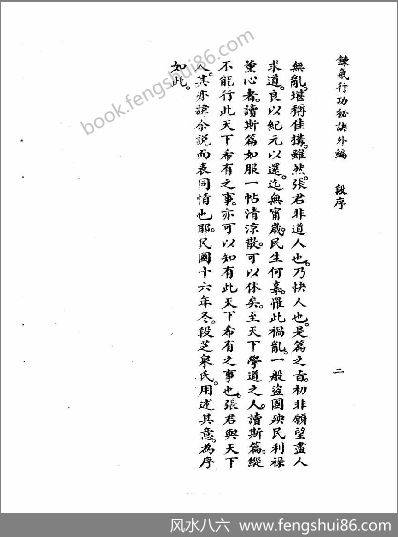 鍊氣行功秘訣外編 段序 二
無亂。堪稱佳構。雖然。張君非道人也。乃快人也。是篇之旨。初非願望盡人
求道。良以紀元以還。迄無甯歲。民生何辜。罹此禍亂。一般盜國殃民利祿
薰心者。讀斯篇如服一帖清涼散。可以休矣。至天下學道之人。讀斯篇。縱
不能行此天下希有之事。亦可以知有此天下希有之事也。張君與天下
人。其亦諒余說而表同情也耶。民國十六年冬。段芝泉氏。用述其意。為序
如此。
book.fengshui86.com
风水八六 www.fengshui86.com